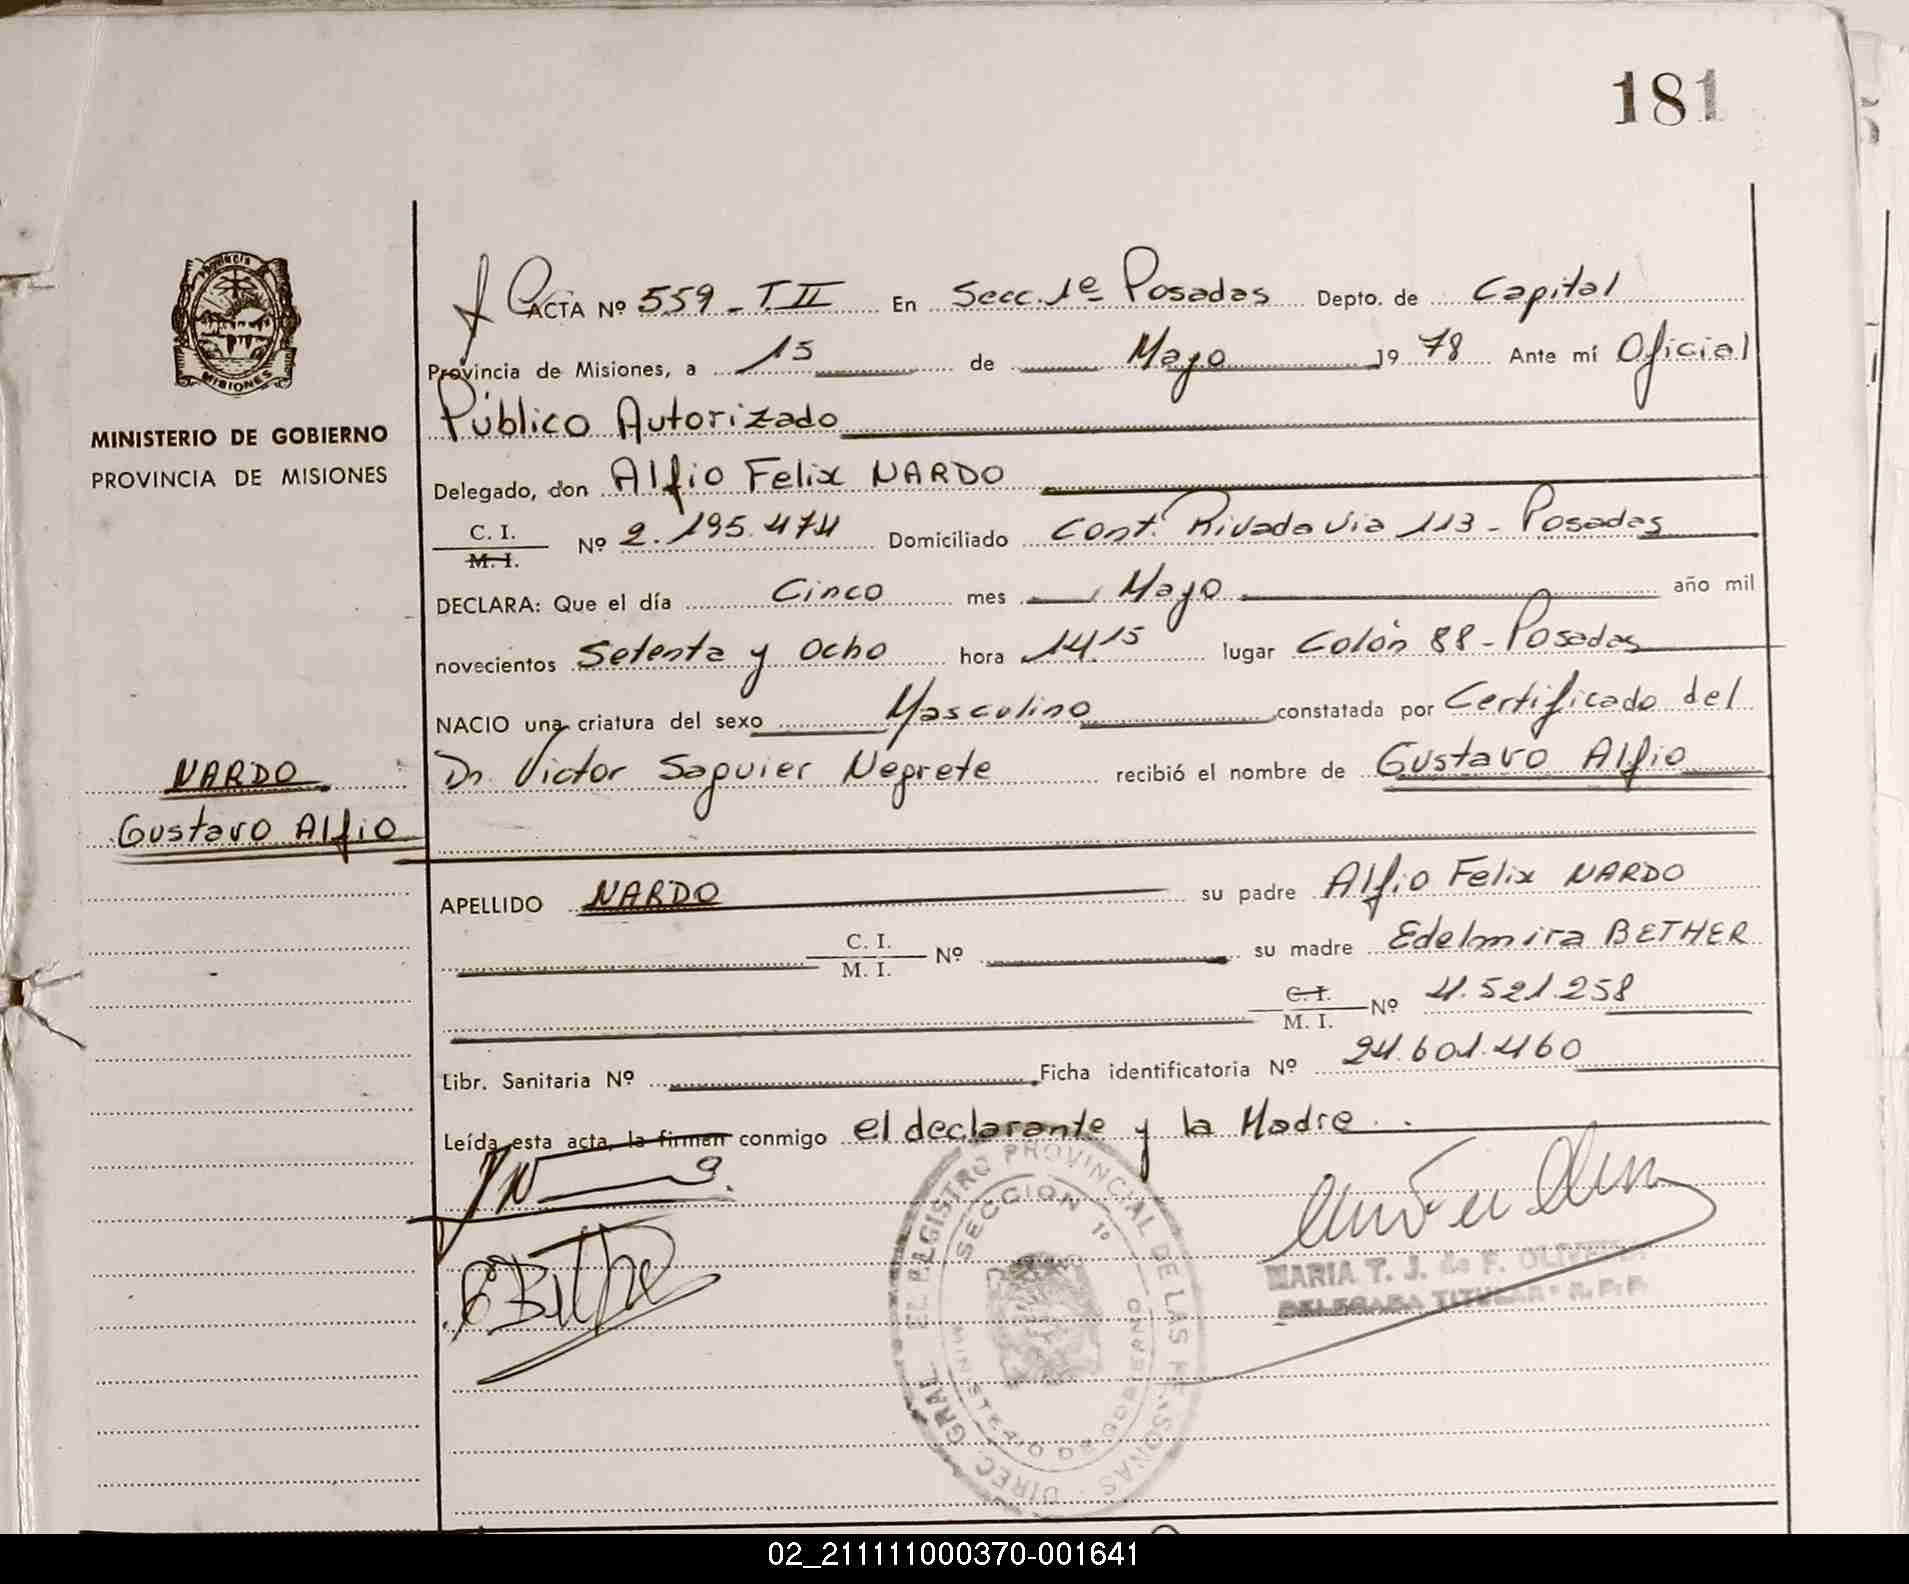 181
Provincia
MISIONES
MINISTERIO DE GOBIERNO
PROVINCIA DE MISIONES
ACTA Nº 559 - T II En Secc. 1ª Posadas Depto. de Capital
Provincia de Misiones, a 15 de Mayo 19 78 Ante mí Oficial
Público Autorizado
Delegado, don Alfio Felix NARDO
C. I.
M. I.
Nº 2.195.474 Domiciliado Cont. Rivadavia 113 - Posadas
DECLARA: Que el día Cinco mes Mayo año mil
novecientos Setenta y Ocho hora 14.15 lugar Colón 88 - Posadas
NACIO una criatura del sexo Masculino constatada por Certificado del
Dr. Victor Saguier Negrete recibió el nombre de Gustavo Alfio
NARDO
Gustavo Alfio
APELLIDO NARDO su padre Alfio Felix NARDO
C. I.
M. I.
Nº su madre Edelmira BETHER
C. I.
M. I.
Nº 4.521.258
Libr. Sanitaria Nº Ficha identificatoria Nº 24.601.460
Leída esta acta, la firman conmigo el declarante y la Madre.
DIREC. GRAL. EL REGISTRO PROVINCIAL DE LAS PERSONAS
SECCION 1º
MINISTERIO DE GOBIERNO
MARIA T. J. de F. OLIVEIRA
DELEGADA TITULAR R. P. P.
02_211111000370-001641